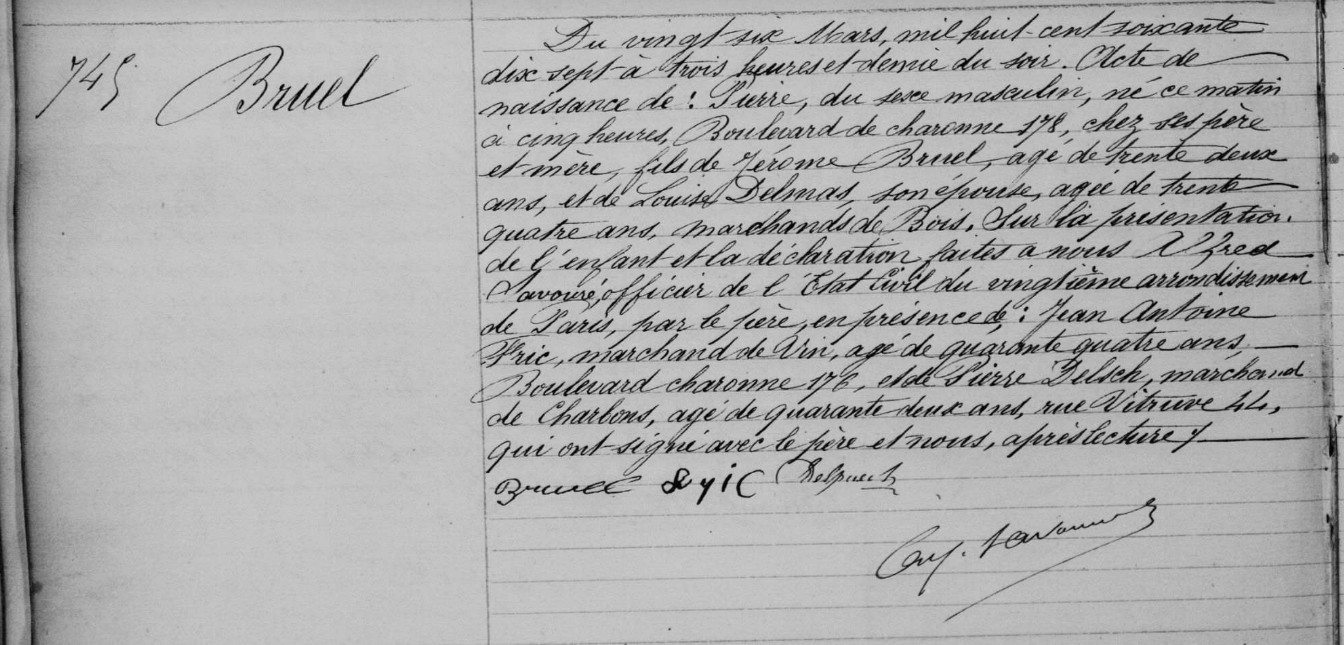 745 Bruel
Du vingt six Mars, mil huit-cent soixante
dix sept à trois heures et demie du soir. Acte de
naissance de : Pierre, du sexe masculin, né ce matin
à cinq heures, Boulevard de charonne 178, chez ses père
et mère, fils de Jérome Bruel, agé de trente deux
ans, et de Louise Delmas, son épouse, agée de trente
quatre ans, marchands de Bois. Sur la présentation
de l'enfant et la déclaration faites a nous Alfred
Savouré, officier de l'Etat Civil du vingtième arrondissement
de Paris, par le père, en présence de : Jean Antoine
marchand de Vin, agé de quarante quatre ans,
Boulevard charonne 176, et de Pierre Delsch, marchand
de Charbons, agé de quarante deux ans, rue Vitruve 44,
qui ont signé avec le père et nous, après lecture
Bruel Delpuech